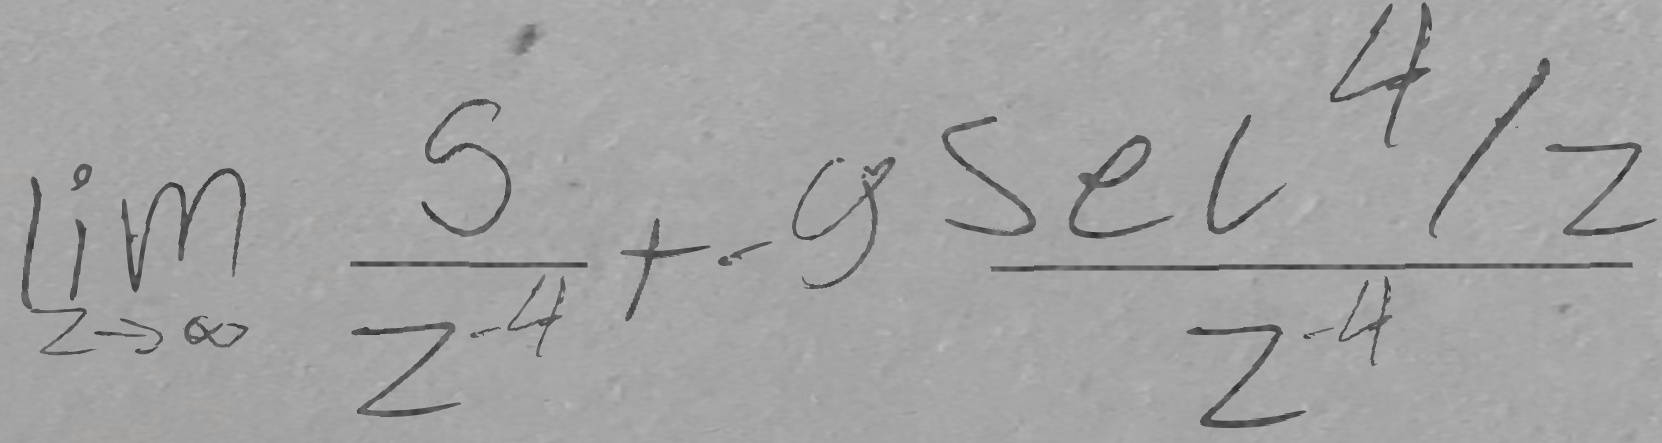 \lim_{z \to \infty} \frac{5}{z^{-4}} + -9 \frac{\sec^4/z}{z^{-4}}